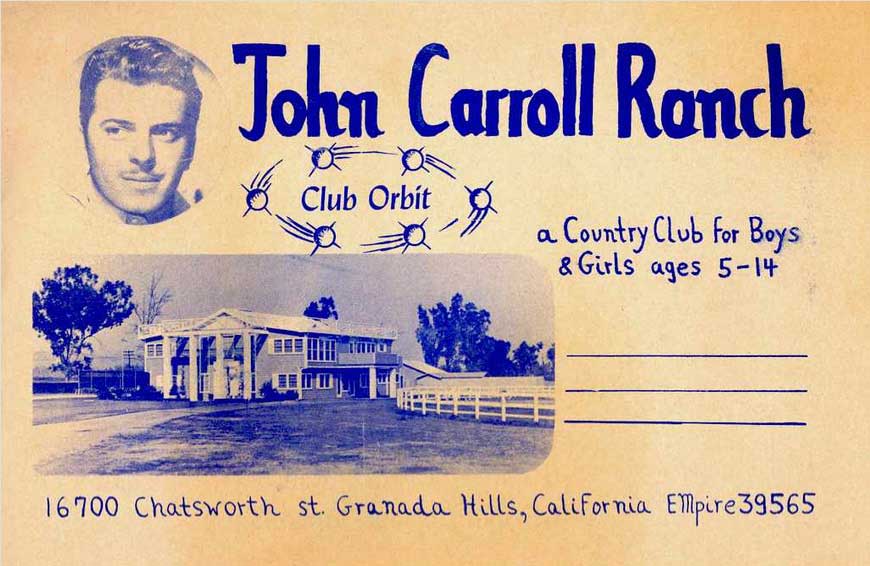 John Carroll Ranch
Club Orbit
a Country Club for Boys
& Girls ages 5-14
16700 Chatsworth st. Granada Hills, California EMpire39565